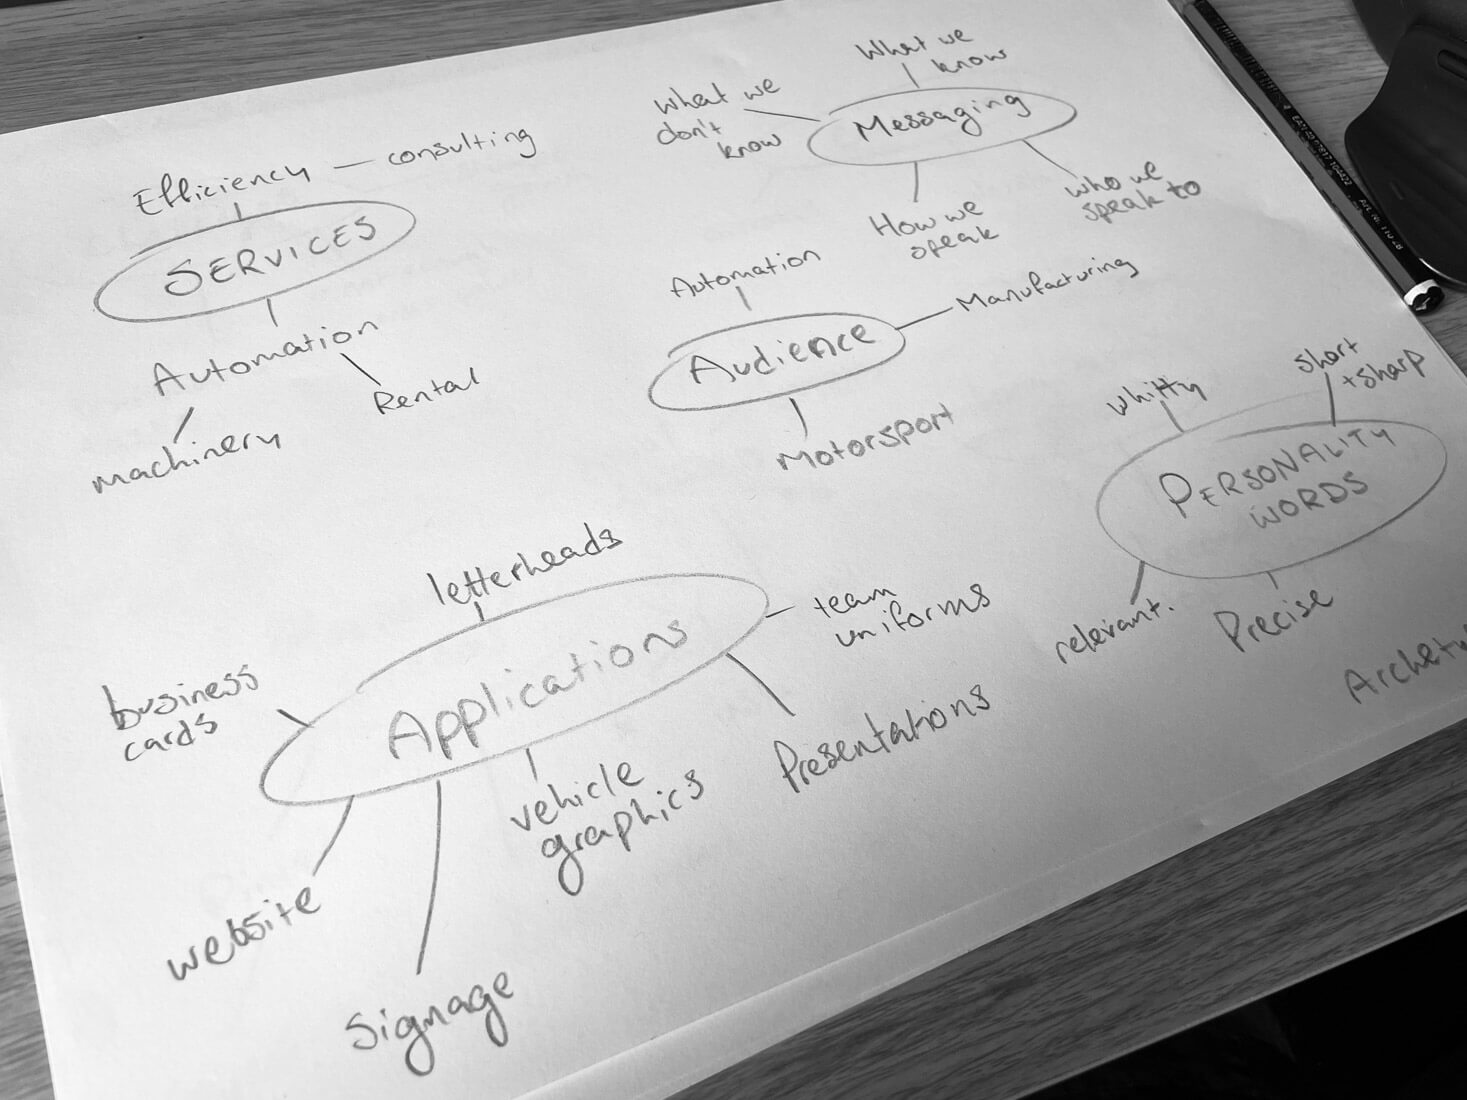 Efficiency — consulting
SERVICES
Automation
Rental
machinery
What we
know
What we
don't
know
Messaging
How we
speak
who we
speak to
Automation
Manufacturing
Audience
Motorsport
whitty
short
+sharp
PERSONALITY
WORDS
relevant.
Precise
letterheads
team
uniforms
Applications
business
cards
Presentations
vehicle
graphics
website
Signage